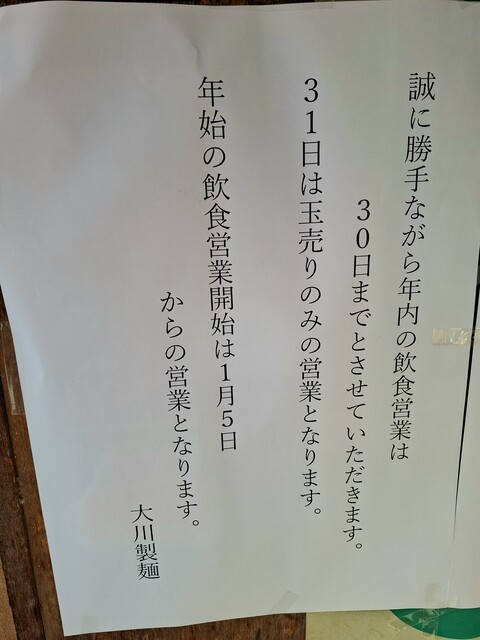 誠に勝手ながら年内の飲食営業は
30日までとさせていただきます。
31日は玉売りのみの営業となります。
年始の飲食営業開始は1月5日
からの営業となります。
大川製麺